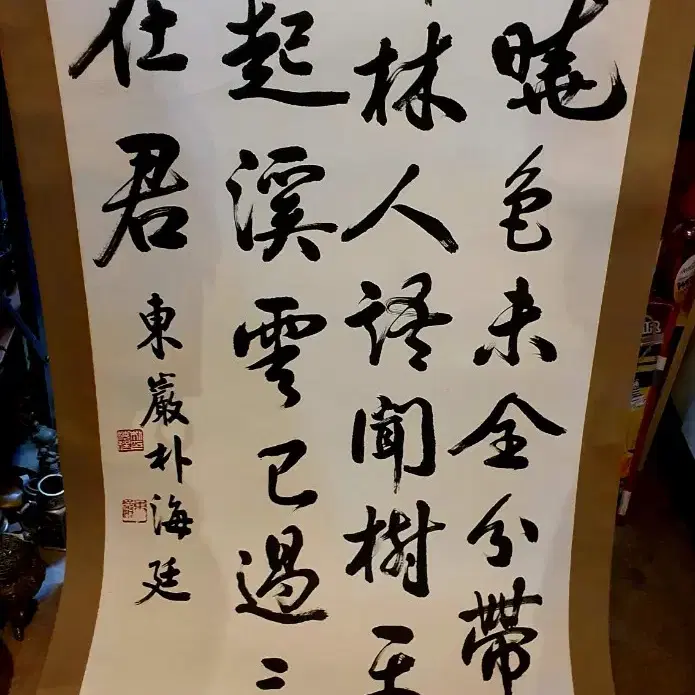 曉色未全分帶
林人語聞樹
起溪雲已過
仕君
東巖朴海廷